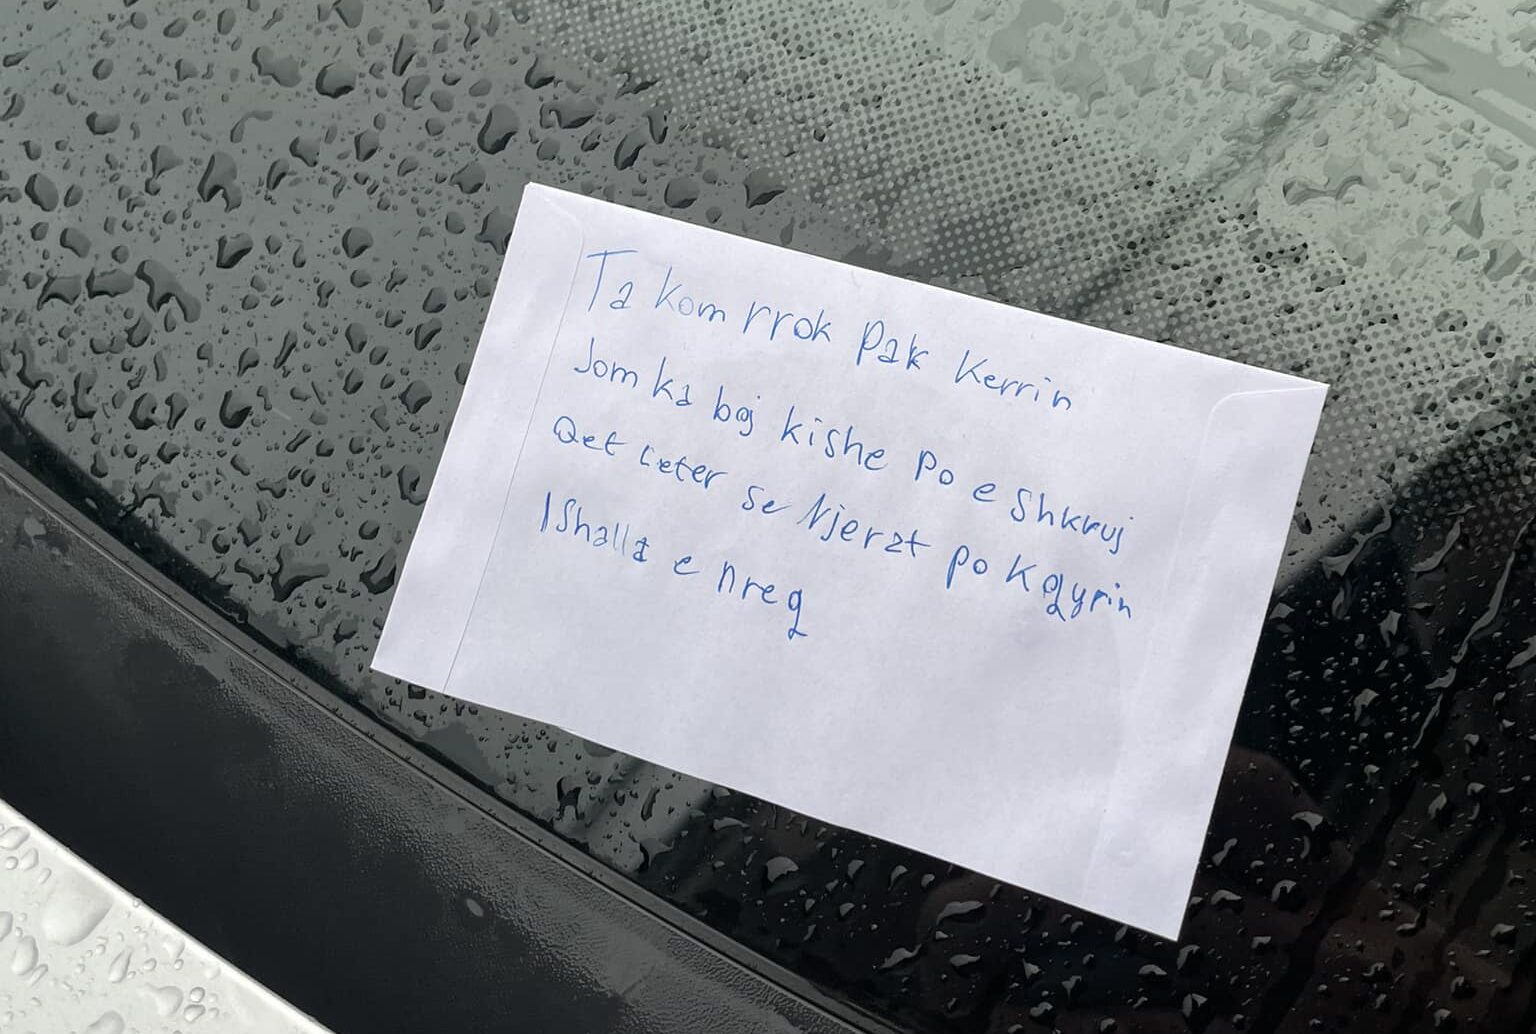 Ta kom rrok Pak Kerrin
Jom ka boj kishe po e shkruj
Qet leter se Njerzt po kqyrin
Ishalla e nreq